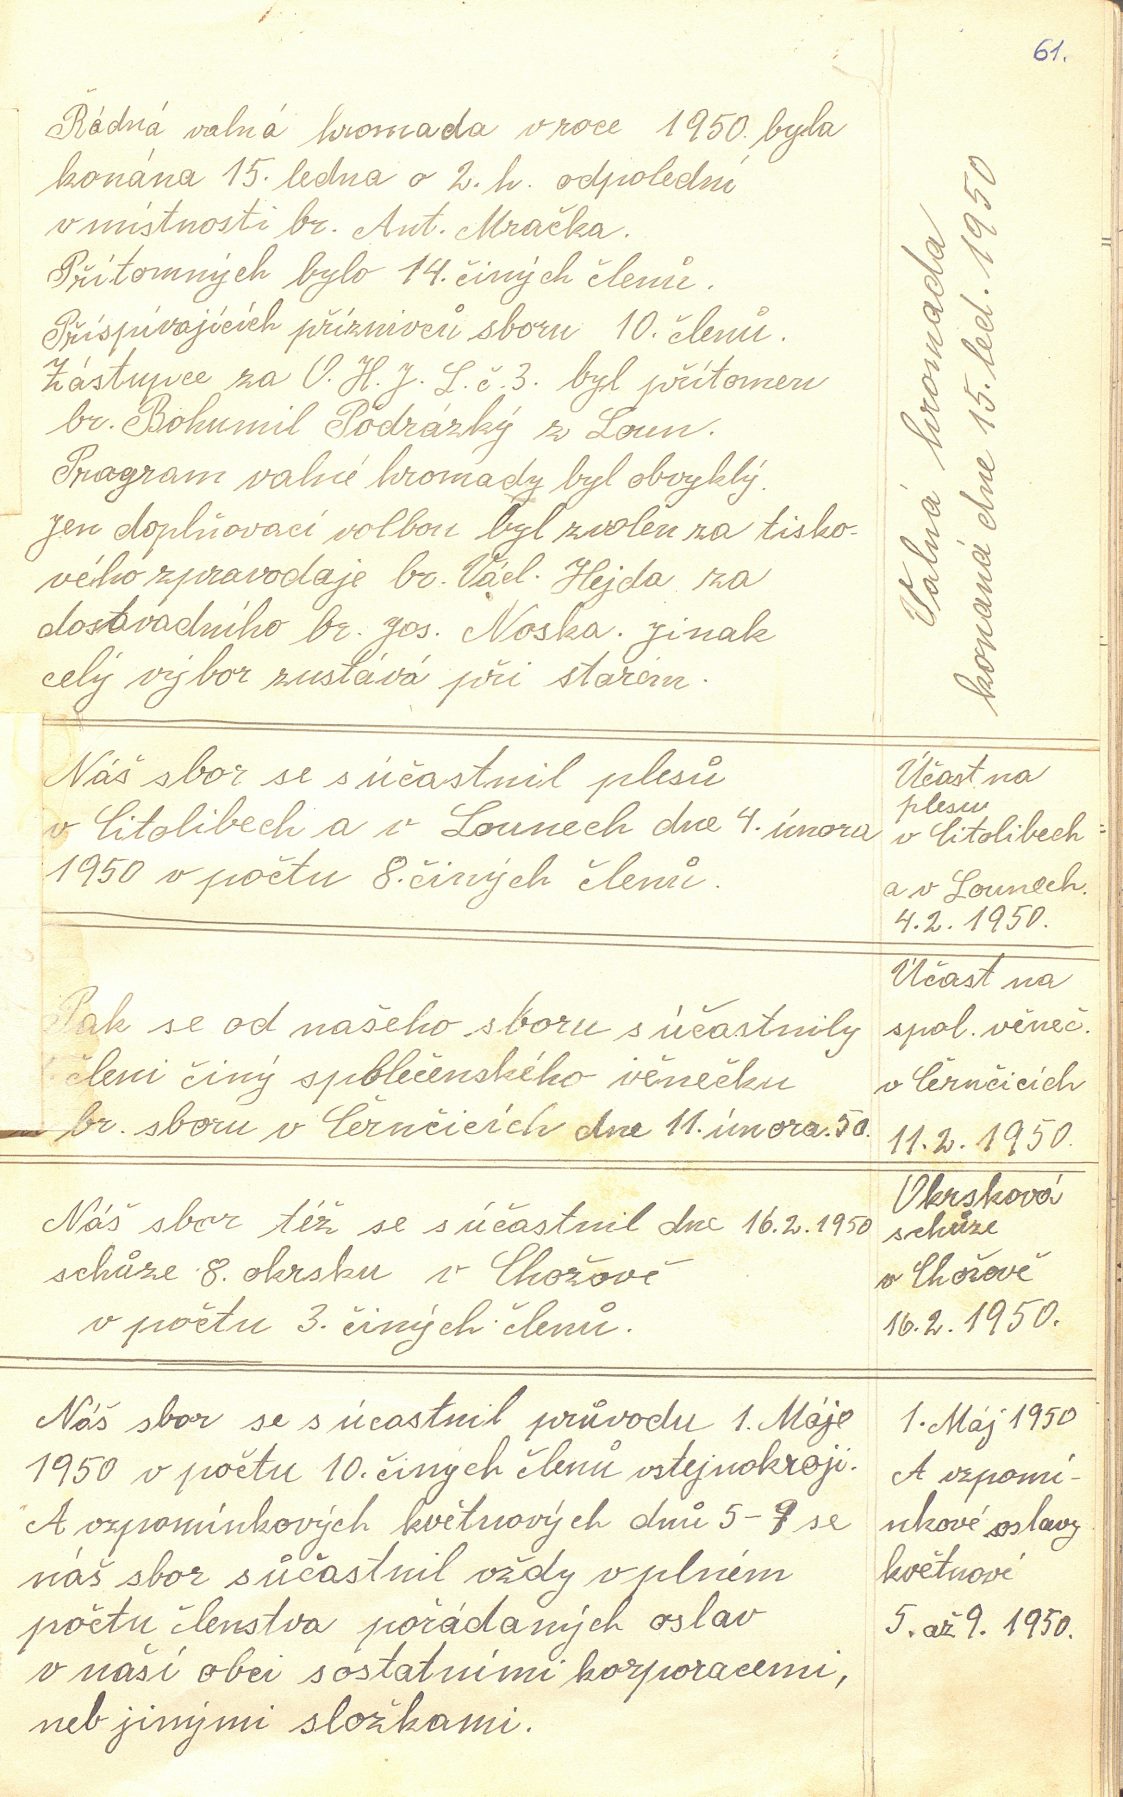 61.
Řádná valná hromada v roce 1950. byla
konána 15. ledna o 2. h. odpolední
v místnosti br. Ant. Mračka.
Přítomných bylo 14. činých členů.
Příspívajících příznivců sboru 10. členů.
Zástupce za O. H. J. L. č. 3. byl přítomen
br. Bohumil Podrázký z Loun.
Program valné hromady byl obvyklý.
jen doplňovací volbou byl zvolen za tisko-
vého zpravodaje br. Václ. Hejda za
dosavadního br. Jos. Noska. jinak
celý výbor zustává při starém.
Valná hromada
konaná dne 15. led. 1950
Náš sbor se súčastnil plesů
v Citolibech a v Lounech dne 4. února
1950 v počtu 8. činých členů.
Účast na
plesu
v Citolibech
a v Lounech.
4. 2. 1950.
Pak se od našeho sboru súčastnily
členi činý společenského věnečku
br. sboru v Černčicích dne 11. února. 50.
Účast na
spol. věneč.
v Černčicích
11. 2. 1950.
Náš sbor též se súčastnil dne 16. 2. 1950
schůze 8. okrsku v Chožově
v počtu 3. činých členů.
Okrsková
schůze
v Chožově
16. 2. 1950.
Náš sbor se súcastnil průvodu 1. Máje
1950 v počtu 10. činých členů vstejnokroji.
A vzpomínkových květnových dnů 5-9 se
náš sbor sůčastnil vždy v plném
počtu členstva pořádaných oslav
v naší obci sostatními korporacemi,
neb jinými složkami.
1. Máj 1950
A vzpomí-
nkové oslavy
květnové
5. až 9. 1950.